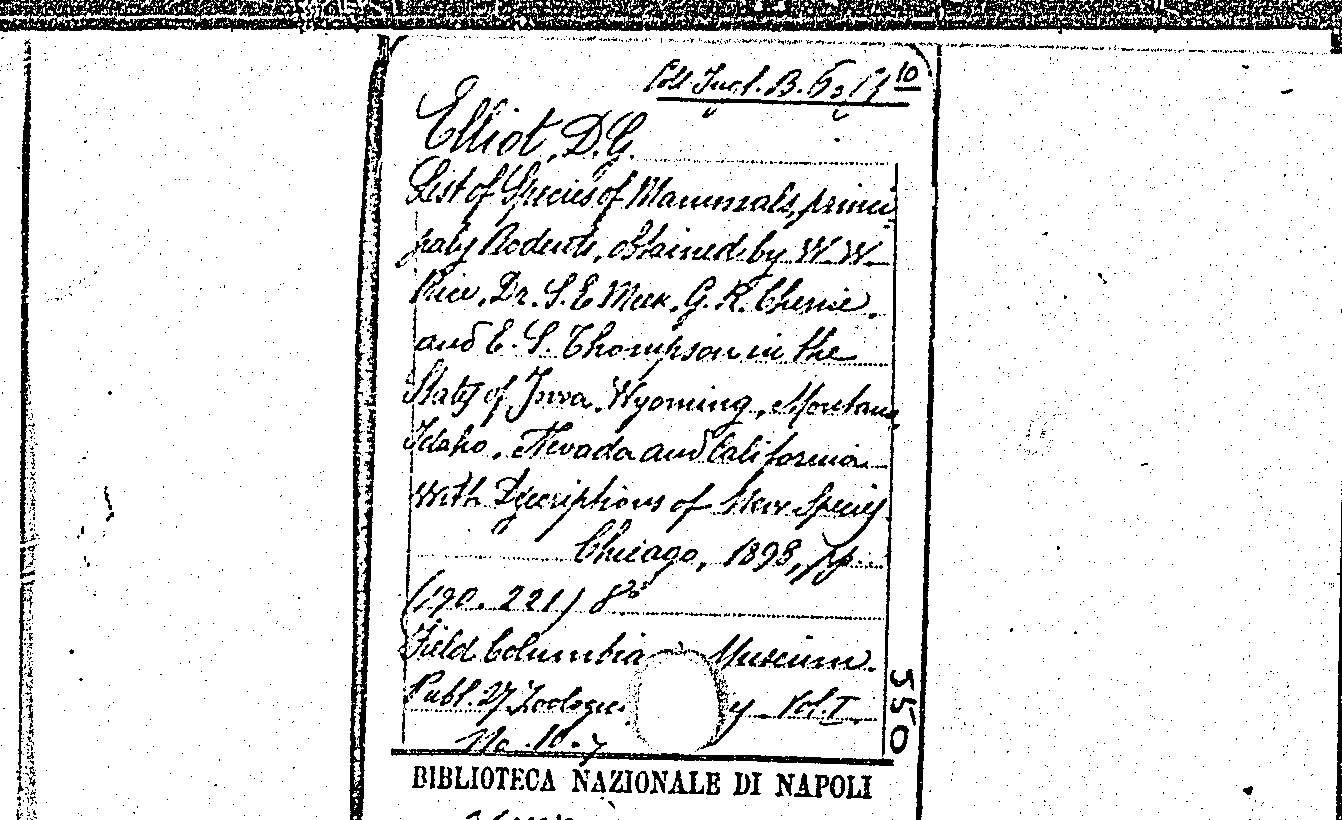 Coll. Ingl. B. 6, 17 10
Elliot, D.G.
List of Species of Mammals, princi
paly Rodents, obtained by W. W.
Rice, Dr. S. E Meek, G. K. Cherrie,
and E. S. Thompson in the
States of Iowa, Wyoming, Montana,
Idaho, Nevada and California
With Descriptions of New Species
Chicago, 1898, pp.
(190. 221) 8º
Field Columbia Museum.
Publ. 27, Zoologic y Vol. I
No. 10.
550
BIBLIOTECA NAZIONALE DI NAPOLI